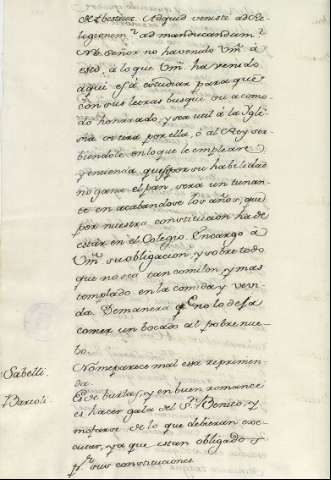 Albestru. Ad quid veniste ad Re-
ligionem? ad manducandum?
No Señor no haviendo Vm. à
esso, à lo que Vm. ha venido
aqui es à estudiar para que
con sus letras busque su acomo-
do honrado, y sea util à la Igle-
sia
ò al Rey sir-
biendole en lo que le empleare
por su habilidad
no gana el pan, sera un tunan-
te en acabandose los años, que
por nuestra constitucion ha de
estar en el Colegio. Encargo à
Vm. su obligacion, y sobre todo
que no sea tan comilon, y mas
templado en la comida y vevi-
da. De manera que no lo defa
comer un bocado al pobre nue-
bo.
No me parece mal esta reprimen-
da.
Es de burlas, y en buen romance
es hacer gala del Sn. Benito, y
mofarse de lo que debieran exe-
cutar, ya que estan obligados
por sus constituciones.
Sabelli.
Bartoli